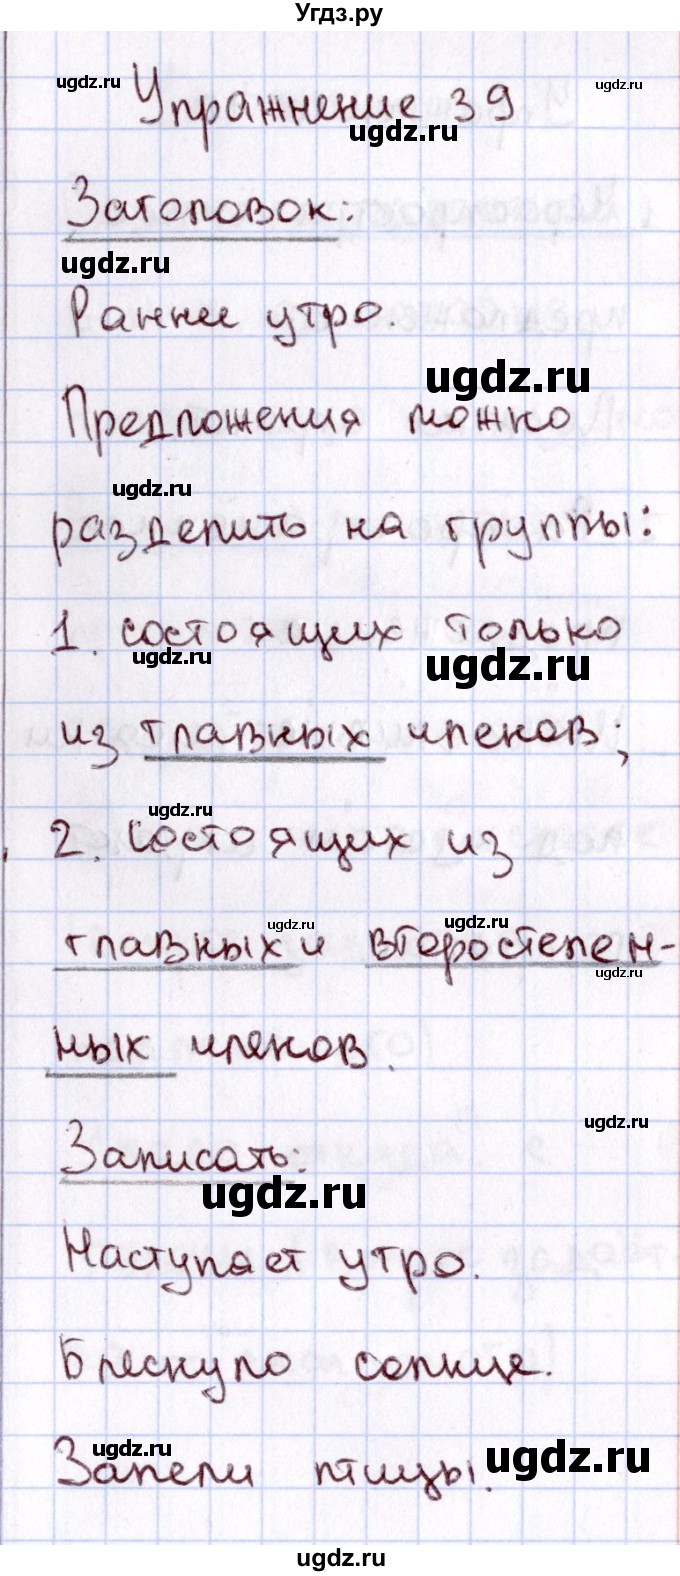 Угдз.ру
ugdz.ru ugdz.ru
Упражнение 39
ugdz.ru
Заголовок:
ugdz.ru
Раннее утро.
ugdz.ru
Предложения можно
ugdz.ru
разделить на группы:
1. состоящих только
ugdz.ru ugdz.ru
из главных членов;
ugdz.ru
2. состоящих из
ugdz.ru ugdz.ru
главных и второстепен-
ugdz.ru
ных членов.
ugdz.ru
Записать:
ugdz.ru
Наступает утро.
Блеснуло солнце.
ugdz.ru ugdz.ru
Запели птицы.
ugdz.ru